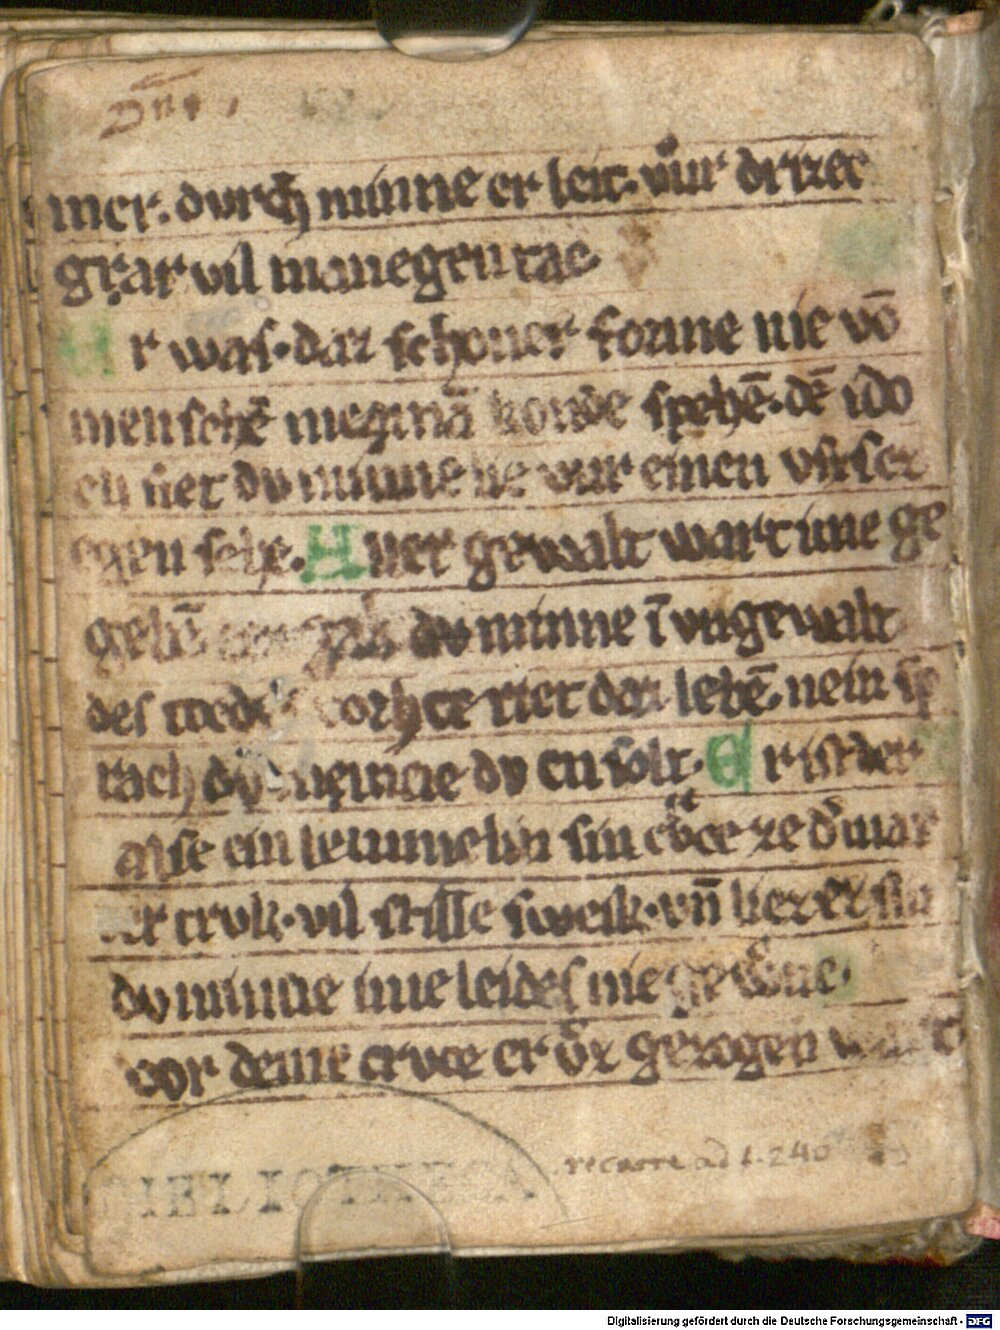 mer. dvrch minne er leit. vͦur drizec
grar vil manegen tac
r was. daz schoner forme nie vō
menschē niegmā konde spehē. dē ido
en niet dv minne lie vur einen vssez
egen sehe. Aller gewalt wart ime ge
gebē dv minne ī vngewalt
des vorhte riet daz lebē. nein sp
rach dv en solt. Er ist der
alse ein lemmelin sin cruce ze dͤ mar
ter trvk. vil stille sweik. vn̄ liez er sla
dv minne ime leides nie gewͦc.
vor deme crvce er vz gezogen
BIBLIOTHECA
recurre ad f. 240
Digitalisierung gefördert durch die Deutsche Forschungsgemeinschaft - DFG